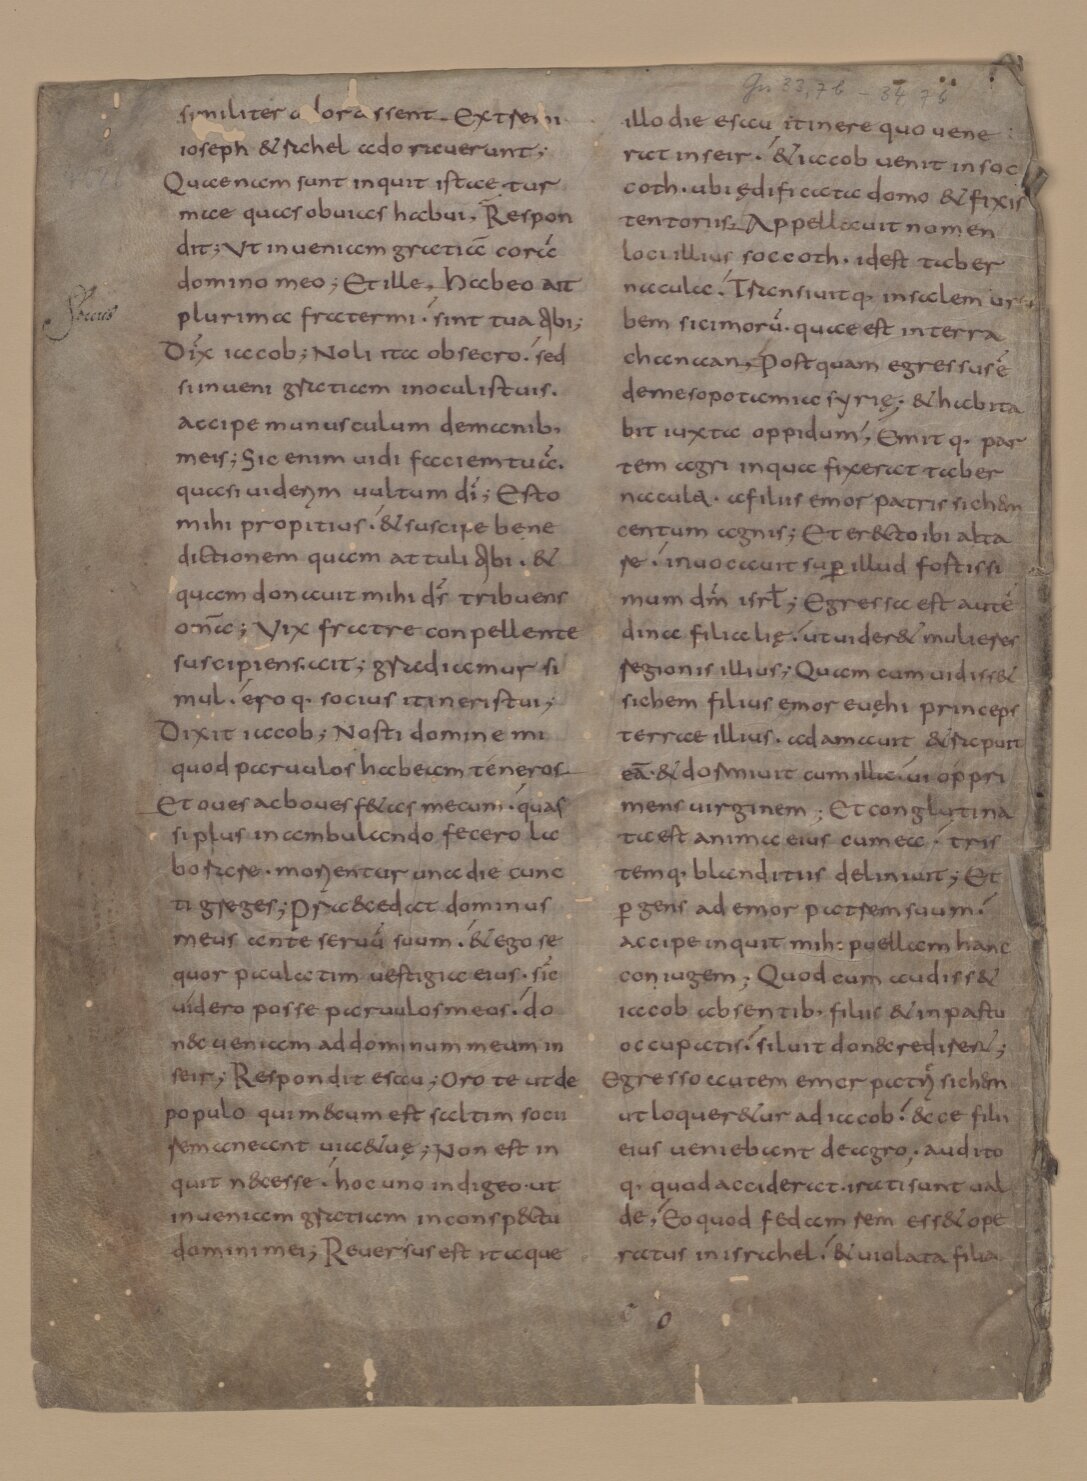 Gn 33,7b – 34 7b
similiter adorassent. Extremi
ioseph & rachel adorauerunt;
Quaenam sunt inquit istae tur
mae quas obuias habui, Respon
dit; Ut inueniam gratiā corā
domino meo; Et ille, Habeo ait
plurima frater mi. sint tua tibi;
Dix̄ iacob; Noli ita obsecro. sed
si inueni gratiam in oculis tuis.
accipe munusculum demanib;
meis; Sic enim uidi faciem tuā.
quasi uiderim uultum dī; Esto
mihi propitius. & suscipe bene
dictionem quam attuli tibi. &
quam donauit mihi d̄s tribuens
omīa; Vix fratre conpellente
suscipiens. ait; gradiamur si
mul. ero q. socius itineris tui;
Dixit iacob; Nosti domine mi
quod paruulos habeam teneros
Et oues ac boues f&as mecum. quas
si plus in ambulando fecero la
borare. morientur una die cunc
ti greges; Praecedat dominus
meus ante seruū suum. & ego se
quar paulatim uestigia eius. sic̄
uidero posse paruulos meos. do
nec ueniam ad dominum meum in
seir; Respondit esau; Oro te ut de
populo qui mecum est saltim socii
remaneant uiae tuę; Non est in
quit necesse. hoc uno indigeo. ut
inueniam gratiam in conspectu
domini mei; Reuersus est itaque
Socius
illo die esau itinere quo uene
rat in seir. & iacob uenit in soc
coth. ubi ędificata domo & fixis
tentoriis. Appellauit nomen
loci illius soccoth. id est taber
nacula. Transiuit q. in salem ur
bem sicimorū. quae est in terra
chanaan, Postquam egressus ē
de mesopotamia syrię; & habita
bit iuxta oppidum, Emit q. par
tem agri in qua fixerat taber
nacula. a filiis emor patris sichem
centum agnis; Et erecto ibi alta
re. inuocauit sup illud fortissi
mum dm̄ isrl̄; Egressa est autē
dina filia lię. ut uider& mulieres
regionis illius; Quam cum uidiss&
sichem filius emor euęhi princeps
terrae illius. adamauit & rapuit
eā. & dormiuit cum illa. ui oppri
mens uirginem; Et conglutina
ta est anima eius cum ea. tris
tem q. blanditiis deliniuit; Et
pgens ad emor patrem suum.
accipe inquit mihi puellam hanc
coniugem; Quod cum audiss&
iacob absentib; filiis & in pastu
occupatis. siluit donec rediren̄;
Egresso autem emor patre sichem
ut loquer&ur ad iacob. ecce filii
eius ueniebant de agro, audito
q. quod acciderat. irati sunt ual
de, Eo quod fedam rem ess& ope
ratus in israhel. & uiolata filia